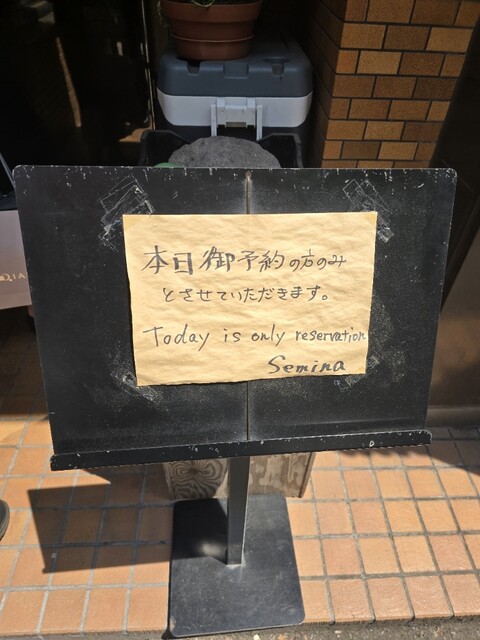 本日御予約の方のみ
とさせていただきます。
Today is only reservation
Semina